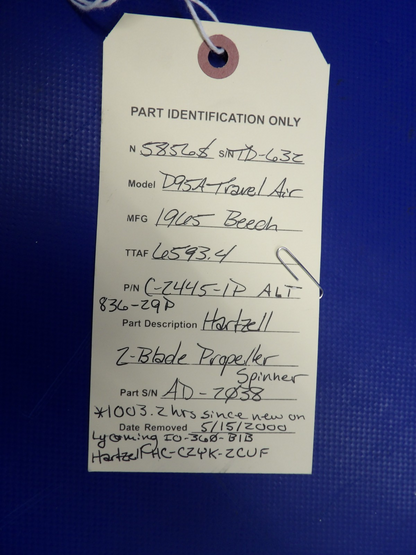 PART IDENTIFICATION ONLY
N 5856S S/N TD-632
Model D95A-Travel Air
MFG 1965 Beech
TTAF 6593.4
P/N C-2445-1P ALT
836-29P
Part Description Hartzell
2-Blade Propeller
Spinner
Part S/N AD-2038
*1003.2 hrs since new on
Date Removed 5/15/2000
Lycoming IO-360-B1B
Hartzell HC-C2YK-2CUF